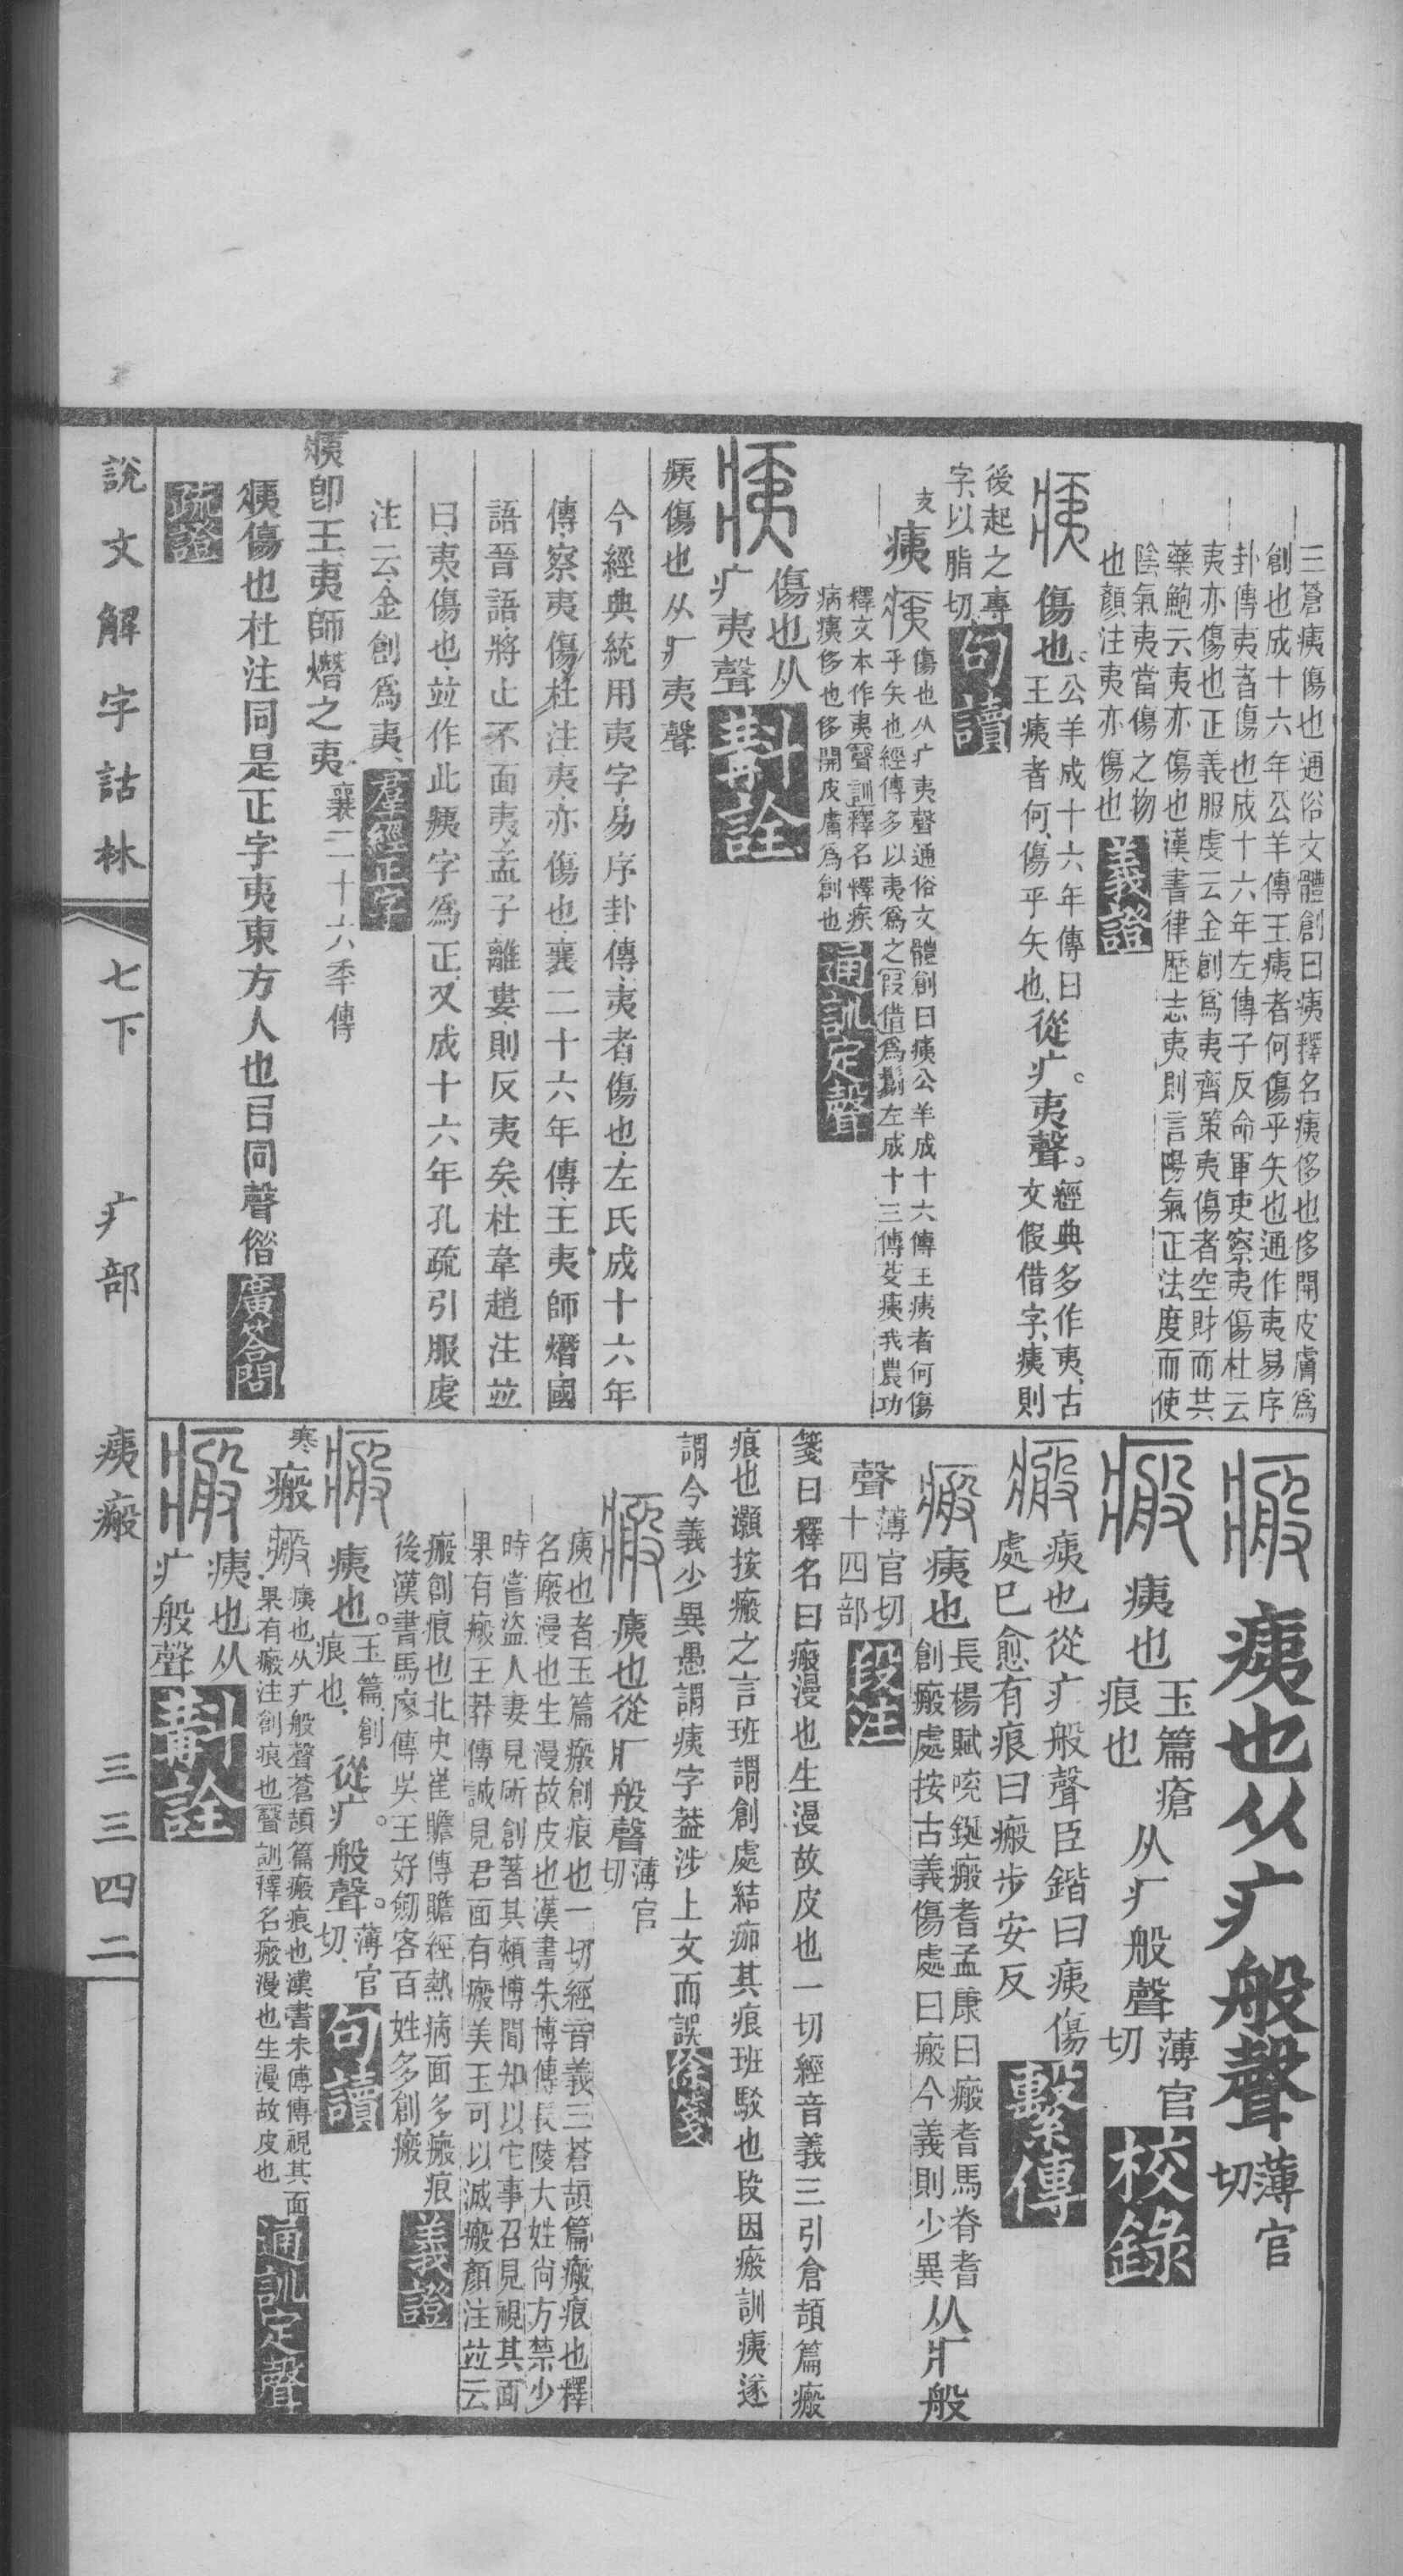 三蒼痍傷也通俗文體創曰痍釋名痍侈也侈開皮膚爲
創也成十六年公羊傳王痍者何傷乎矢也通作夷易序
卦傳夷者傷也成十六年左傳子反命軍吏察夷傷杜云
夷亦傷也正義服虔云金創爲夷齊策夷傷者空財而共
藥鮑云夷亦傷也漢書律歷志夷則言陽氣正法度而使
陰氣夷當傷之物
也顏注夷亦傷也義證
痍傷也公羊成十六年傳曰
王痍者何傷乎矢也從疒夷聲經典多作夷古
文假借字痍則
後起之專
字以脂切句讀
支痍
痍傷也从疒夷聲通俗文體創曰痍公羊成十六傳王痍者何傷
乎矢也經傳多以夷爲之叚借爲鬀左成十三傳芟痍我農功
釋文本作夷聲訓釋名釋疾
病痍侈也侈開皮膚爲創也通訓定聲
痍傷也从
疒夷聲斠詮
痍傷也从疒夷聲
今經典統用夷字易序卦傳夷者傷也左氏成十六年
傳察夷傷杜注夷亦傷也襄二十六年傳王夷師熸國
語晉語將止不面夷孟子離婁則反夷矣杜韋趙注竝
曰夷傷也竝作此痍字爲正又成十六年孔疏引服虔
注云金創爲夷羣經正字
痍卽王夷師熸之夷襄二十六年傳
痍傷也杜注同是正字夷東方人也㠯同聲偕廣答問
疏證
瘢痍也从疒般聲薄官
切
瘢痍也玉篇瘡
痕也从疒般聲薄官
切校錄
瘢痍也從疒般聲臣鍇曰痍傷
處已愈有痕曰瘢步安反繫傳
瘢痍也長楊賦吮鋋瘢耆孟康曰瘢耆馬脊耆
創瘢處按古義傷處曰瘢今義則少異从疒般
聲薄官切
十四部段注
箋曰釋名曰瘢漫也生漫故皮也一切經音義三引倉頡篇瘢
痕也灝按瘢之言班謂創處結痂其痕班駁也段因瘢訓痍遂
謂今義少異愚謂痍字葢涉上文而誤徐箋
瘢痍也從疒般聲薄官
切
痍也者玉篇瘢創痕也一切經音義三蒼頡篇瘢痕也釋
名瘢漫也生漫故皮也漢書朱博傳長陵大姓尙方禁少
時嘗盜人妻見斫創著其頰博聞知以它事召見視其面
果有瘢王莽傳誠見君面有瘢美玉可以滅瘢顏注竝云
瘢創痕也北史崔贍傳贍經熱病面多瘢痕
後漢書馬廖傳吳王好劒客百姓多創瘢義證
瘢痍也玉篇創
痕也從疒般聲薄官
切句讀
寒瘢
瘢痍也从疒般聲蒼頡篇瘢痕也漢書朱傅傳視其面
果有瘢注創痕也聲訓釋名瘢漫也生漫故皮也通訓定聲
瘢痍也从
疒般聲斠詮
說文解字詁林 七下 疒部 痍瘢 三三四二